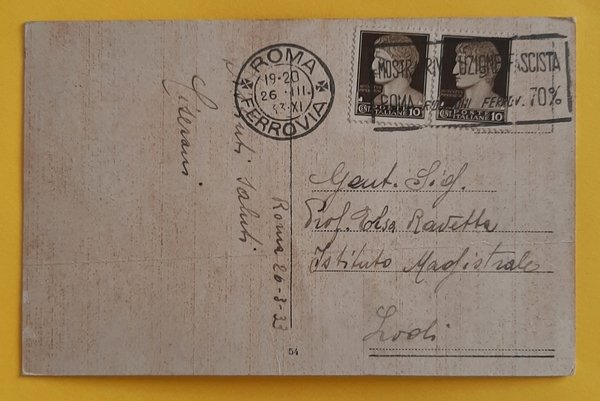 ROMA
19-20
26 · III
33 · XI
FERROVIA
MOSTRA RIVOLUZIONE FASCISTA
ROMA FERROV. 70%
POSTE ITALIANE
CENT 10
POSTE ITALIANE
CENT 10
Gent. Sig.
Prof. Elsa Ravetta
Istituto Magistrale
Lodi
Saluti
Roma 26-3-33
54